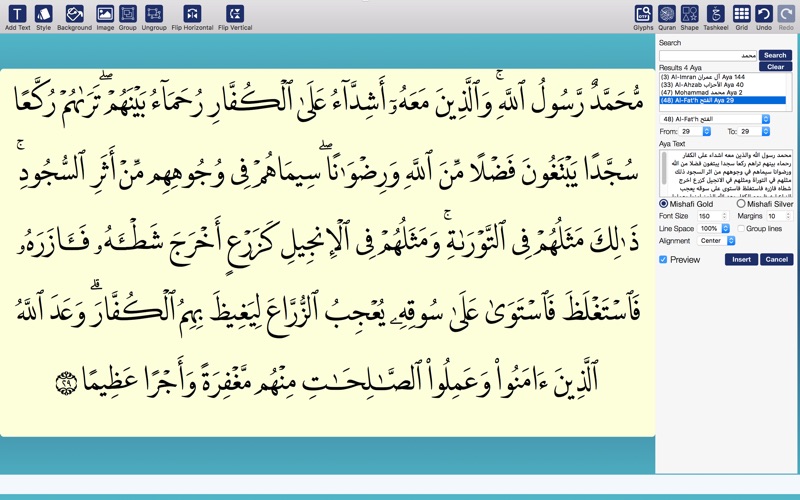 Add Text Style Background Image Group Ungroup Flip Horizontal Flip Vertical Glyphs Quran Shape Tashkeel Grid Undo Redo
مُّحَمَّدٌ رَّسُولُ ٱللَّهِۚ وَٱلَّذِينَ مَعَهُۥٓ أَشِدَّآءُ عَلَى ٱلْكُفَّارِ رُحَمَآءُ بَيْنَهُمْۖ تَرَىٰهُمْ رُكَّعًا
سُجَّدًا يَبْتَغُونَ فَضْلًا مِّنَ ٱللَّهِ وَرِضْوَٰنًاۖ سِيمَاهُمْ فِى وُجُوهِهِم مِّنْ أَثَرِ ٱلسُّجُودِۚ
ذَٰلِكَ مَثَلُهُمْ فِى ٱلتَّوْرَىٰةِۚ وَمَثَلُهُمْ فِى ٱلْإِنجِيلِ كَزَرْعٍ أَخْرَجَ شَطْـَٔهُۥ فَـَٔازَرَهُۥ
فَٱسْتَغْلَظَ فَٱسْتَوَىٰ عَلَىٰ سُوقِهِۦ يُعْجِبُ ٱلزُّرَّاعَ لِيَغِيظَ بِهِمُ ٱلْكُفَّارَۗ وَعَدَ ٱللَّهُ
ٱلَّذِينَ ءَامَنُوا۟ وَعَمِلُوا۟ ٱلصَّـٰلِحَـٰتِ مِنْهُم مَّغْفِرَةً وَأَجْرًا عَظِيمًۢا ٢٩
Search
محمد Search
Results 4 Aya Clear
(3) Al-Imran آل عمران Aya 144
(33) Al-Ahzab الأحزاب Aya 40
(47) Mohammad محمد Aya 2
(48) Al-Fat'h الفتح Aya 29
48) Al-Fat'h الفتح
From: 29 To: 29
Aya Text
محمد رسول الله والذين معه اشداء على الكفار
رحماء بينهم تراهم ركعا سجدا يبتغون فضلا من الله
ورضوانا سيماهم في وجوههم من اثر السجود ذلك
مثلهم في التوراة ومثلهم في الانجيل كزرع اخرج
شطاه فازره فاستغلظ فاستوى على سوقه يعجب
Mishafi Gold Mishafi Silver
Font Size 150 Margins 10
Line Space 100% Group lines
Alignment Center
Preview Insert Cancel